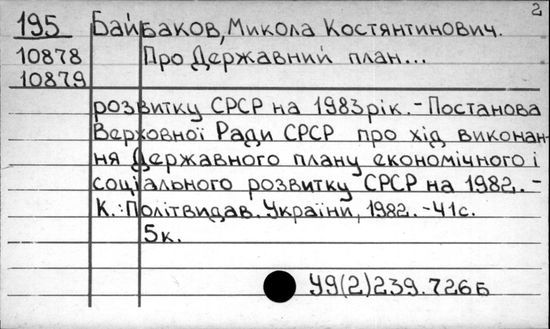 2
195 Байбаков, Микола Костянтинович.
10878 Про Державний план...
10879
розвитку СРСР на 1983 рік. - Постанова
Верховної Ради СРСР про хід виконан-
ня Державного плану економічного і
соціального розвитку СРСР на 1982. -
К.: Політвидав. України, 1982. - 41с.
5к.
У9(2)239.726Б